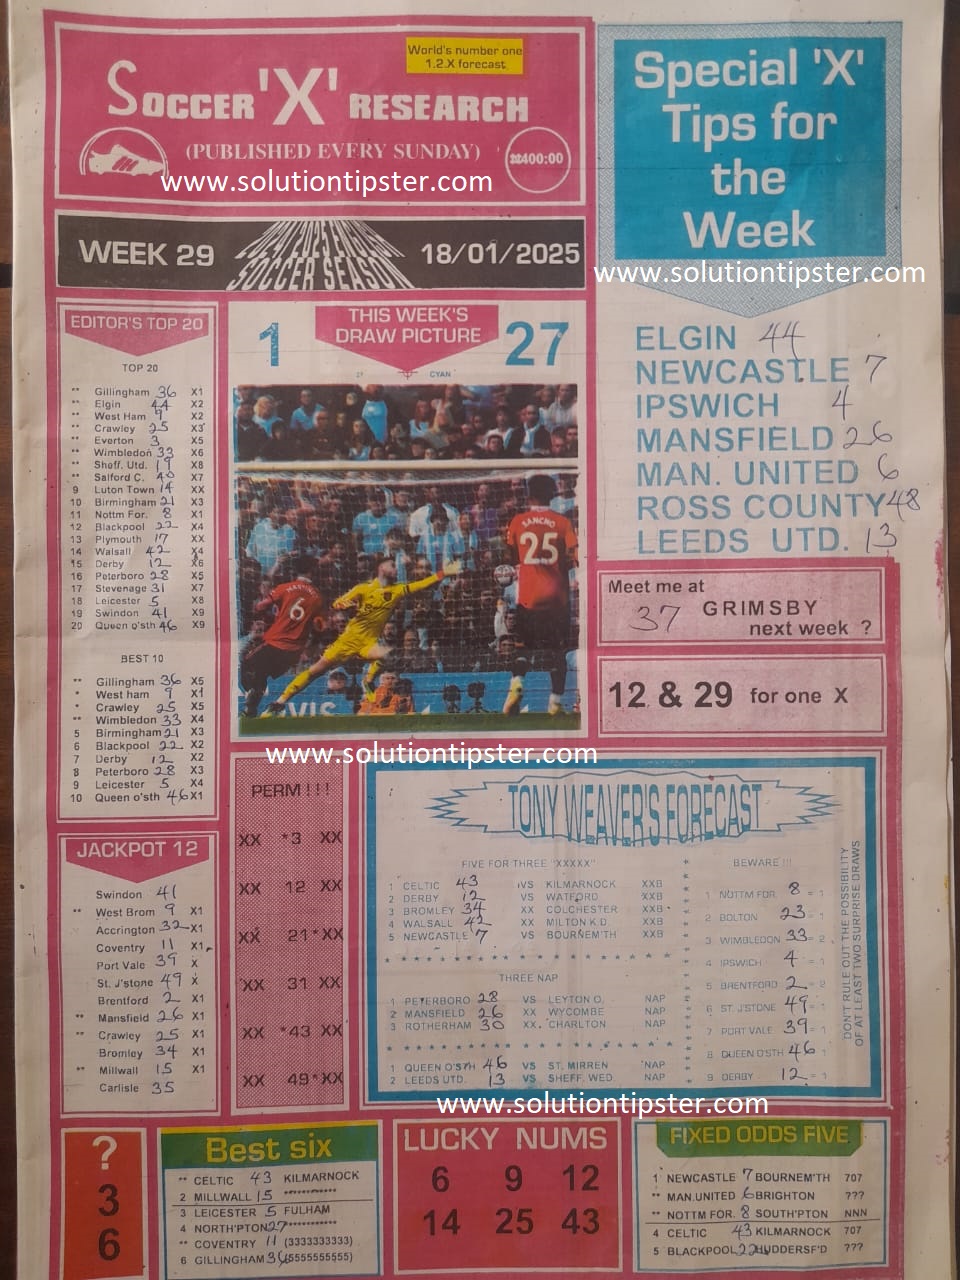 World's number one
1.2.X forecast
SOCCER 'X' RESEARCH
(PUBLISHED EVERY SUNDAY)
₦400:00
www.solutiontipster.com
WEEK 29
SOCCER SEASON
18/01/2025
Special 'X'
Tips for
the
Week
www.solutiontipster.com
ELGIN 44
NEWCASTLE 7
IPSWICH 4
MANSFIELD 26
MAN. UNITED 6
ROSS COUNTY 48
LEEDS UTD. 13
Meet me at
37 GRIMSBY
next week ?
12 & 29 for one X
EDITOR'S TOP 20
TOP 20
** Gillingham 36 X1
** Elgin 44 X2
** West Ham 9 X2
** Crawley 25 X3
** Everton 3 X5
** Wimbledon 33 X6
** Sheff. Utd. 19 X8
** Salford C. 40 X7
9 Luton Town 14 XX
10 Birmingham 21 X3
11 Nottm For. 8 X1
12 Blackpool 22 X4
13 Plymouth 17 XX
14 Walsall 42 X4
15 Derby 12 X6
16 Peterboro 28 X5
17 Stevenage 31 X7
18 Leicester 5 X8
19 Swindon 41 X9
20 Queen o'sth 46 X9
BEST 10
** Gillingham 36 X5
* West ham 9 X1
* Crawley 25 X5
** Wimbledon 33 X4
5 Birmingham 21 X3
6 Blackpool 22 X2
7 Derby 12 X2
8 Peterboro 28 X3
9 Leicester 5 X4
10 Queen o'sth 46 X1
1
THIS WEEK'S
DRAW PICTURE
27
CYAN
6
SANCHO
25
www.solutiontipster.com
JACKPOT 12
Swindon 41
** West Brom 9 X1
Accrington 32 X1
Coventry 11 X1
Port Vale 39 X
St. J'stone 49 X
Brentford 2 X1
** Mansfield 26 X1
** Crawley 25 X1
Bromley 34 X1
** Millwall 15 X1
Carlisle 35
PERM !!!
XX *3 XX
XX 12 XX
XX 21* XX
XX 31 XX
XX *43 XX
XX 49* XX
TONY WEAVER'S FORECAST
FIVE FOR THREE "XXXXX"
1 CELTIC 43 VS KILMARNOCK XXB
2 DERBY 12 VS WATFORD XXB
3 BROMLEY 34 XX COLCHESTER XXB
4 WALSALL 42 XX MILTON K.D. XXB
5 NEWCASTLE 7 VS BOURNEM'TH XXB
THREE NAP
1 PETERBORO 28 VS LEYTON O. NAP
2 MANSFIELD 26 XX WYCOMBE NAP
3 ROTHERHAM 30 XX. CHARLTON NAP
1 QUEEN O'STH 46 VS ST. MIRREN NAP
2 LEEDS UTD. 13 VS SHEFF. WED. NAP
BEWARE !!!
1 NOTTM FOR. 8 = 1
2 BOLTON 23 = 1
3 WIMBLEDON 33 = 2
4 IPSWICH 4 = 1
5 BRENTFORD 2 = 2
6 ST. J'STONE 49 = 1
7 PORT VALE 39 = 1
8 QUEEN O'STH 46 1
9 DERBY 12 = 1
DON'T RULE OUT THE POSSIBILITY
OF AT LEAST TWO SURPRISE DRAWS
www.solutiontipster.com
?
3
6
Best six
** CELTIC 43 KILMARNOCK
2 MILLWALL 15 ***********
3 LEICESTER 5 FULHAM
4 NORTH'PTON 27 ***********
** COVENTRY 11 (3333333333)
6 GILLINGHAM 36 (5555555555)
LUCKY NUMS
6 9 12
14 25 43
FIXED ODDS FIVE
1 NEWCASTLE 7 BOURNEM'TH 707
** MAN.UNITED 6 BRIGHTON ???
** NOTTM FOR. 8 SOUTH'PTON NNN
4 CELTIC 43 KILMARNOCK 707
5 BLACKPOOL 22 HUDDERSF'D ???